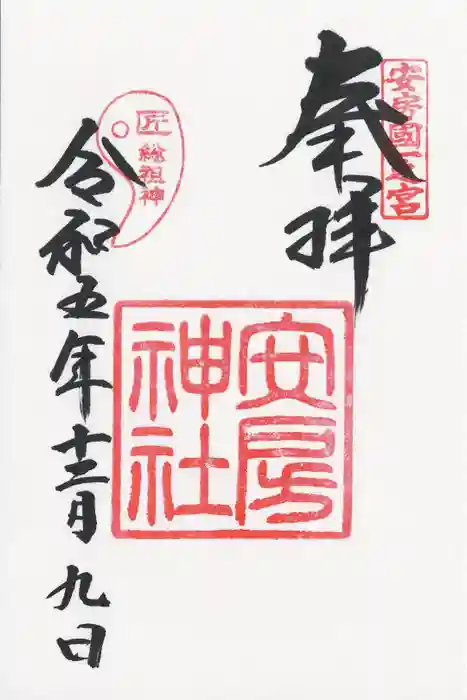 奉拝
安房國一之宮
安房
神社
匠
総祖神
令和五年十二月九日